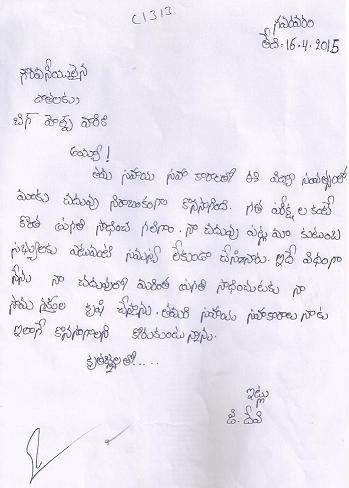 C1313
సవరవరం
తేది: 16.4.2015
గౌరవనీయులైన
దాతలకు,
బిగ్ హెల్ప్ వారికి
అయ్యా!
తమ సహాయ సహ కారాలతో ఈ విద్యా సంవత్సరంలో
మాకు చదువు నిరాటంకంగా కొనసాగింది. గత పరీక్ష ల కంటే
కొంత ప్రగతి సాధించ గలిగాం. నా చదువు పట్ల మా కుటుంబ
సభ్యులకు ఎటువంటి సమస్య లేకుండా చేసినారు. ఇదే విధంగా
నేను నా చదువులో మరింత ప్రగతి సాధించుటకు నా
సాయ శక్తుల కృషి చేస్తాను. తమరి సహాయ సహకారాలు నాకు
ఇలాగే కొనసాగాలని కోరుకుంటు న్నాను.
కృతజ్ఞతలతో....
ఇట్లు
డి. దేవి